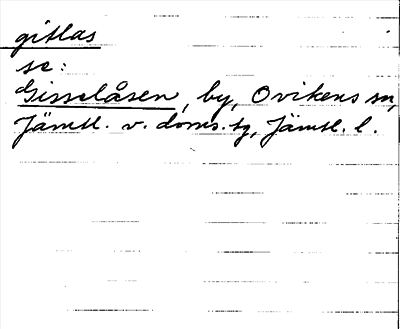 gitlas
se:
Gisselåsen, by, Ovikens sn,
Jämtl. v. doms. tg, Jämtl. l.